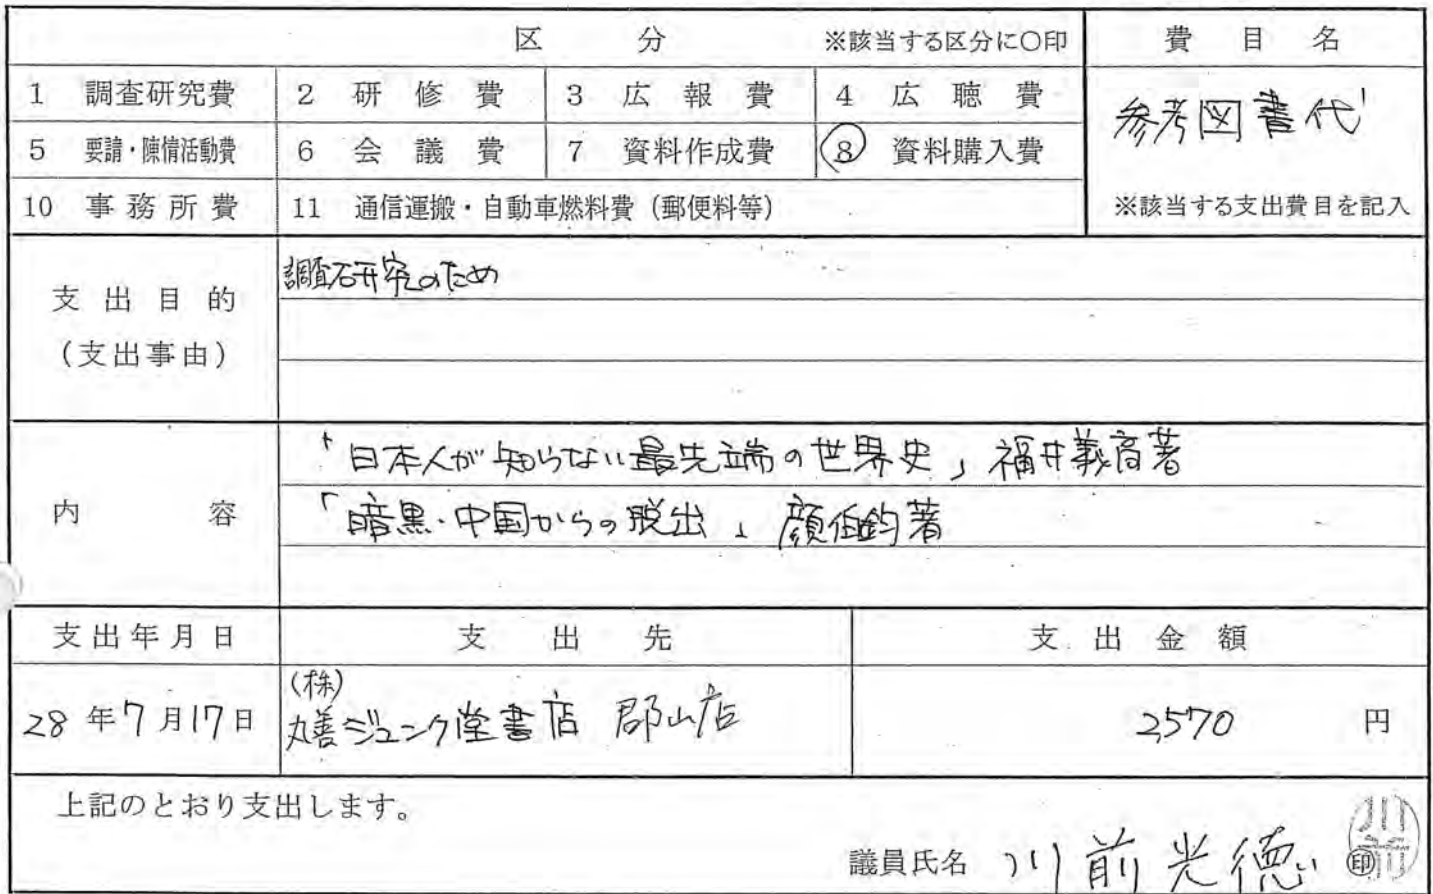 区 分 ※該当する区分に○印 費 目 名
1 調査研究費 2 研 修 費 3 広 報 費 4 広 聴 費
参考図書代
5 要請・陳情活動費 6 会 議 費 7 資料作成費 8 資料購入費
10 事務所費 11 通信運搬・自動車燃料費(郵便料等) ※該当する支出費目を記入
調査研究のため
支 出 目 的
(支出事由)
「日本人が知らない最先端の世界史」福井義高著
内 容 「暗黒・中国からの脱出」顔伯鈞著
支出年月日 支 出 先 支 出 金 額
(株)
28年7月17日 丸善ジュンク堂書店 郡山店 2,570 円
上記のとおり支出します。
議員氏名 川前光徳 ㊞
川前